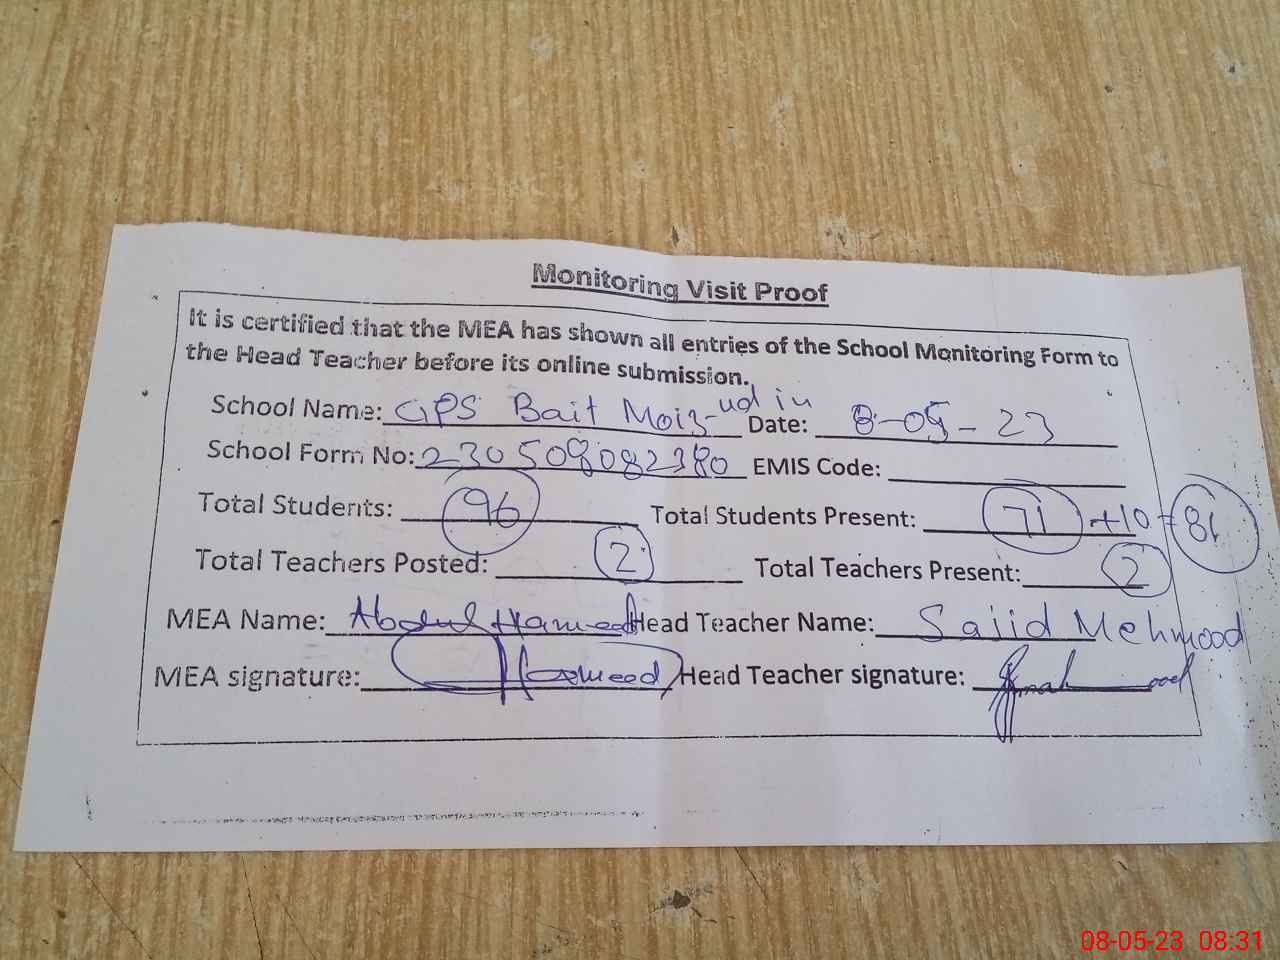 Monitoring Visit Proof
It is certified that the MEA has shown all entries of the School Monitoring Form to
the Head Teacher before its online submission.
School Name: GPS Bait Moiz-ud in Date: 8-05-23
School Form No: 230509082380 EMIS Code:
Total Students: 96 Total Students Present: 71 +10 = 81
Total Teachers Posted: 2 Total Teachers Present: 2
MEA Name: Abdul Hameed Head Teacher Name: Sajid Mehmood
MEA signature: Hameed Head Teacher signature:
08-05-23 08:31